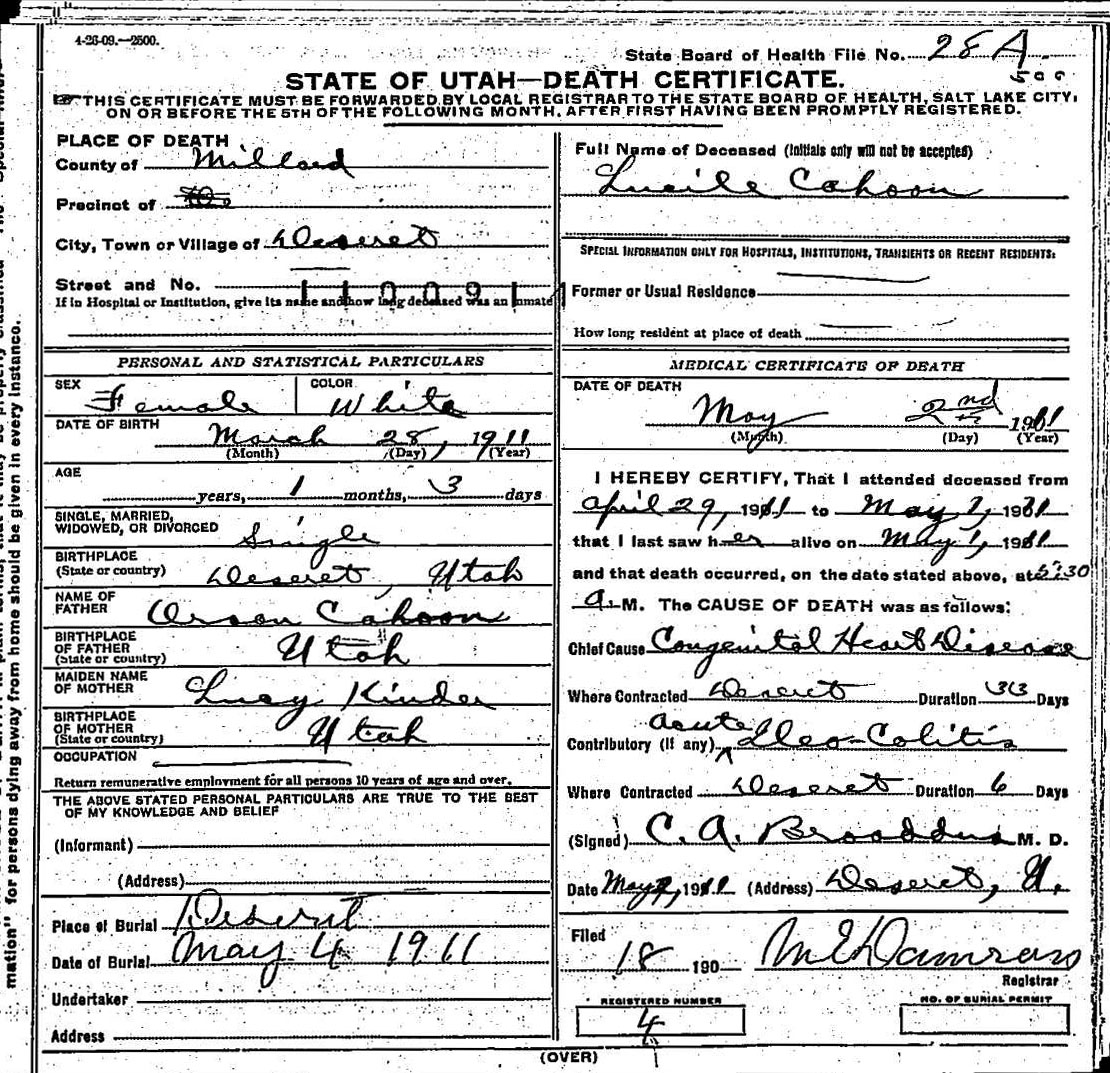 4-26-09.—2500.
State Board of Health File No. 28 A
STATE OF UTAH—DEATH CERTIFICATE.
THIS CERTIFICATE MUST BE FORWARDED BY LOCAL REGISTRAR TO THE STATE BOARD OF HEALTH, SALT LAKE CITY,
ON OR BEFORE THE 5TH OF THE FOLLOWING MONTH, AFTER FIRST HAVING BEEN PROMPTLY REGISTERED.
PLACE OF DEATH
County of Millard
Precinct of
City, Town or Village of Deseret
Street and No.
If in Hospital or Institution, give its name and how long deceased was an inmate
Full Name of Deceased (Initials only will not be accepted)
Lucile Cahoon
SPECIAL INFORMATION ONLY FOR HOSPITALS, INSTITUTIONS, TRANSIENTS OR RECENT RESIDENTS:
Former or Usual Residence
How long resident at place of death
PERSONAL AND STATISTICAL PARTICULARS
SEX Female COLOR White
DATE OF BIRTH
March 28, 1911
(Month) (Day) (Year)
AGE
years, 1 months, 3 days
SINGLE, MARRIED,
WIDOWED, OR DIVORCED Single
BIRTHPLACE
(State or country) Deseret, Utah
NAME OF
FATHER Orson Cahoon
BIRTHPLACE
OF FATHER
(State or country) Utah
MAIDEN NAME
OF MOTHER Lucy Kinder
BIRTHPLACE
OF MOTHER
(State or country) Utah
OCCUPATION
Return remunerative employment for all persons 10 years of age and over.
THE ABOVE STATED PERSONAL PARTICULARS ARE TRUE TO THE BEST
OF MY KNOWLEDGE AND BELIEF
(Informant)
(Address)
Place of Burial Deseret
Date of Burial May 4 1911
Undertaker
Address
MEDICAL CERTIFICATE OF DEATH
DATE OF DEATH
May 2nd 1911
(Month) (Day) (Year)
I HEREBY CERTIFY, That I attended deceased from
April 29, 1911 to May 1, 1911
that I last saw her alive on May 1, 1911
and that death occurred, on the date stated above, at 5:30
a. M. The CAUSE OF DEATH was as follows:
Chief Cause Congenital Heart Disease
Where Contracted Deseret Duration 33 Days
Contributory (if any) acute Ileo-Colitis
Where Contracted Deseret Duration 6 Days
(Signed) C. A. Broaddus M. D.
Date May 1911 (Address) Deseret, U.
Filed
18 190
Registrar
REGISTERED NUMBER
4
NO. OF BURIAL PERMIT
(OVER)
mation" for persons dying away from home should be given in every instance.